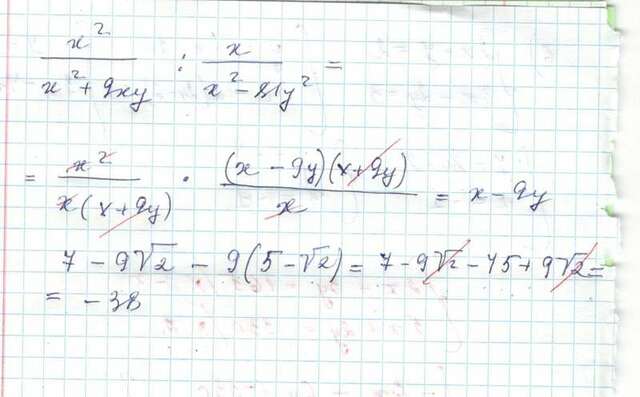 x²/(x² + 9xy) : x/(x² - 81y²) =
= x²/(x(x+9y)) · ((x - 9y)(x+9y))/x = x - 9y
7 - 9√2 - 9(5 - √2) = 7 - 9√2 - 45 + 9√2 =
= -38